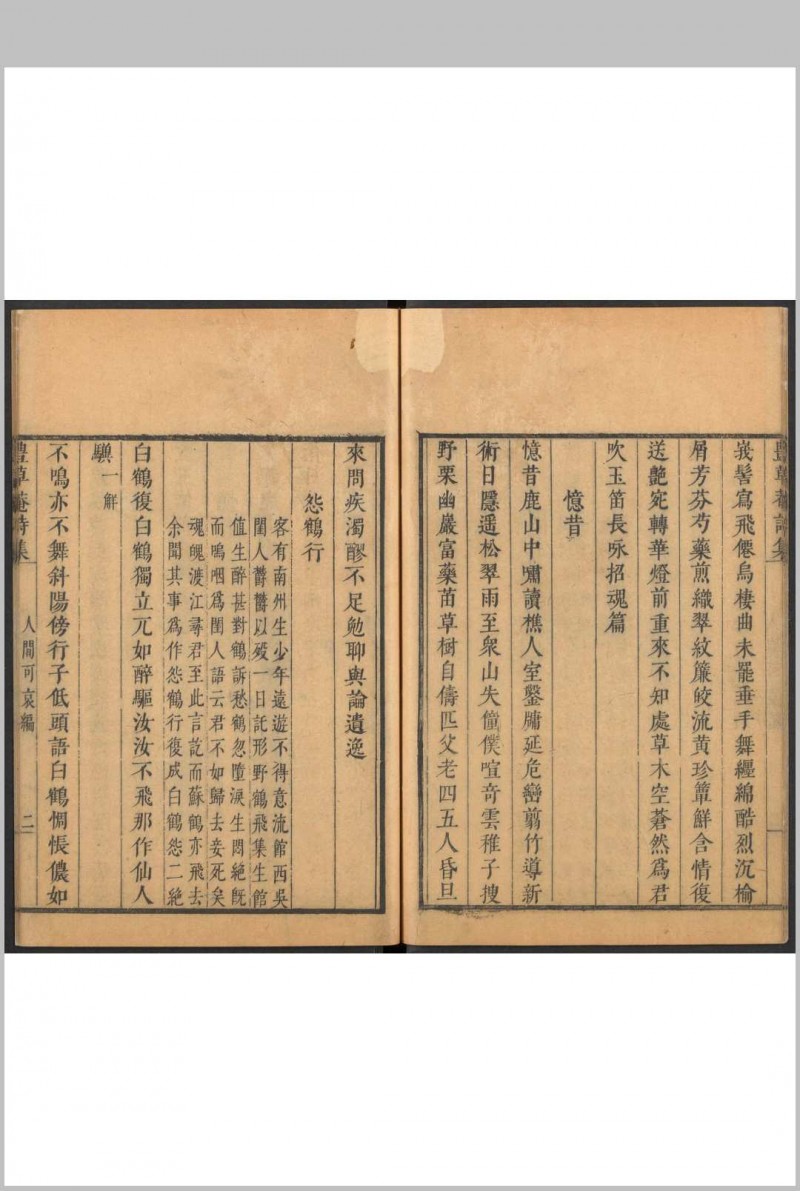 豊草菴詩集
峩髻寫飛僊烏棲曲未罷垂手舞纏綿酷烈沉榆
屑芳芬芍藥煎織翠紋簾皎流黃珍簟鮮含情復
送艷宛轉華燈前重來不知處草木空蒼然爲君
吹玉笛長咏招魂篇
憶昔
憶昔鹿山中嘯讀樵人室鑿牖延危巒翦竹導新
術日隱遥松翠雨至衆山失僮僕喧奇雲稚子搜
野栗幽巖富藥苗草樹自儔匹父老四五人昏旦
來問疾濁醪不足勉聊與論遺逸
怨鶴行
客有南州生少年遠遊不得意流館西吳
閨人欝欝以歿一日託形野鶴飛集生館
值生醉甚對鶴訴愁鶴忽墮淚生悶絶旣
而嗚咽爲閨人語云君不如歸去妾死矣
魂魄渡江尋君至此言訖而蘇鶴亦飛去
余聞其事爲作怨鶴行復成白鶴怨二絶
白鶴復白鶴獨立兀如醉驅汝汝不飛那作仙人
驥一解
不鳴亦不舞斜陽傍行子低頭語白鶴惆悵儂如
豊草菴詩集
人間可哀編
二